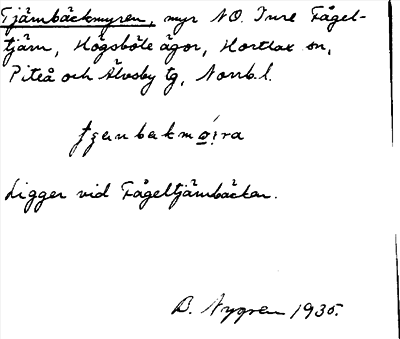 Tjärnbäckmyren, myr NO. Inre Fågel-
tjärn, Högsböle ägor, Hortlax sn,
Piteå och Älvsby tg, Norrb. l.
Ligger vid Fågeltjärnbäcken.
D. Nygren 1935.